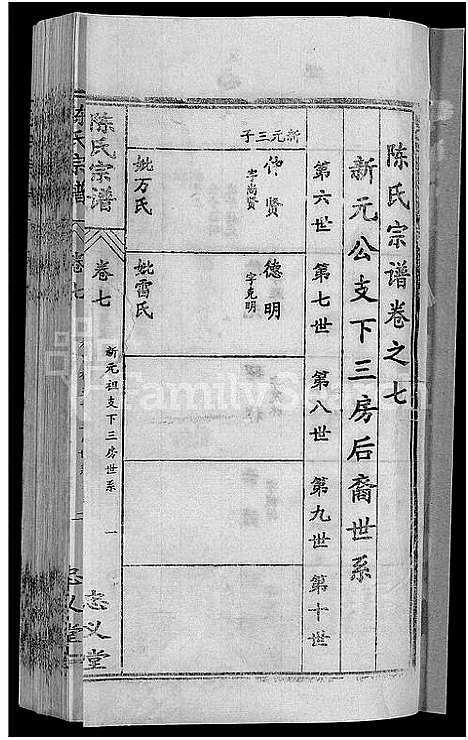 陈氏宗谱卷之七
新元公支下三房后裔世系
第六世
第七世
第八世
第九世
第十世
新元三子
仲贤
字尚贤
妣万氏
德明
字克明
妣雷氏
陈氏宗谱
卷七
新元祖支下三房世系
一
志义堂
FamilySearch